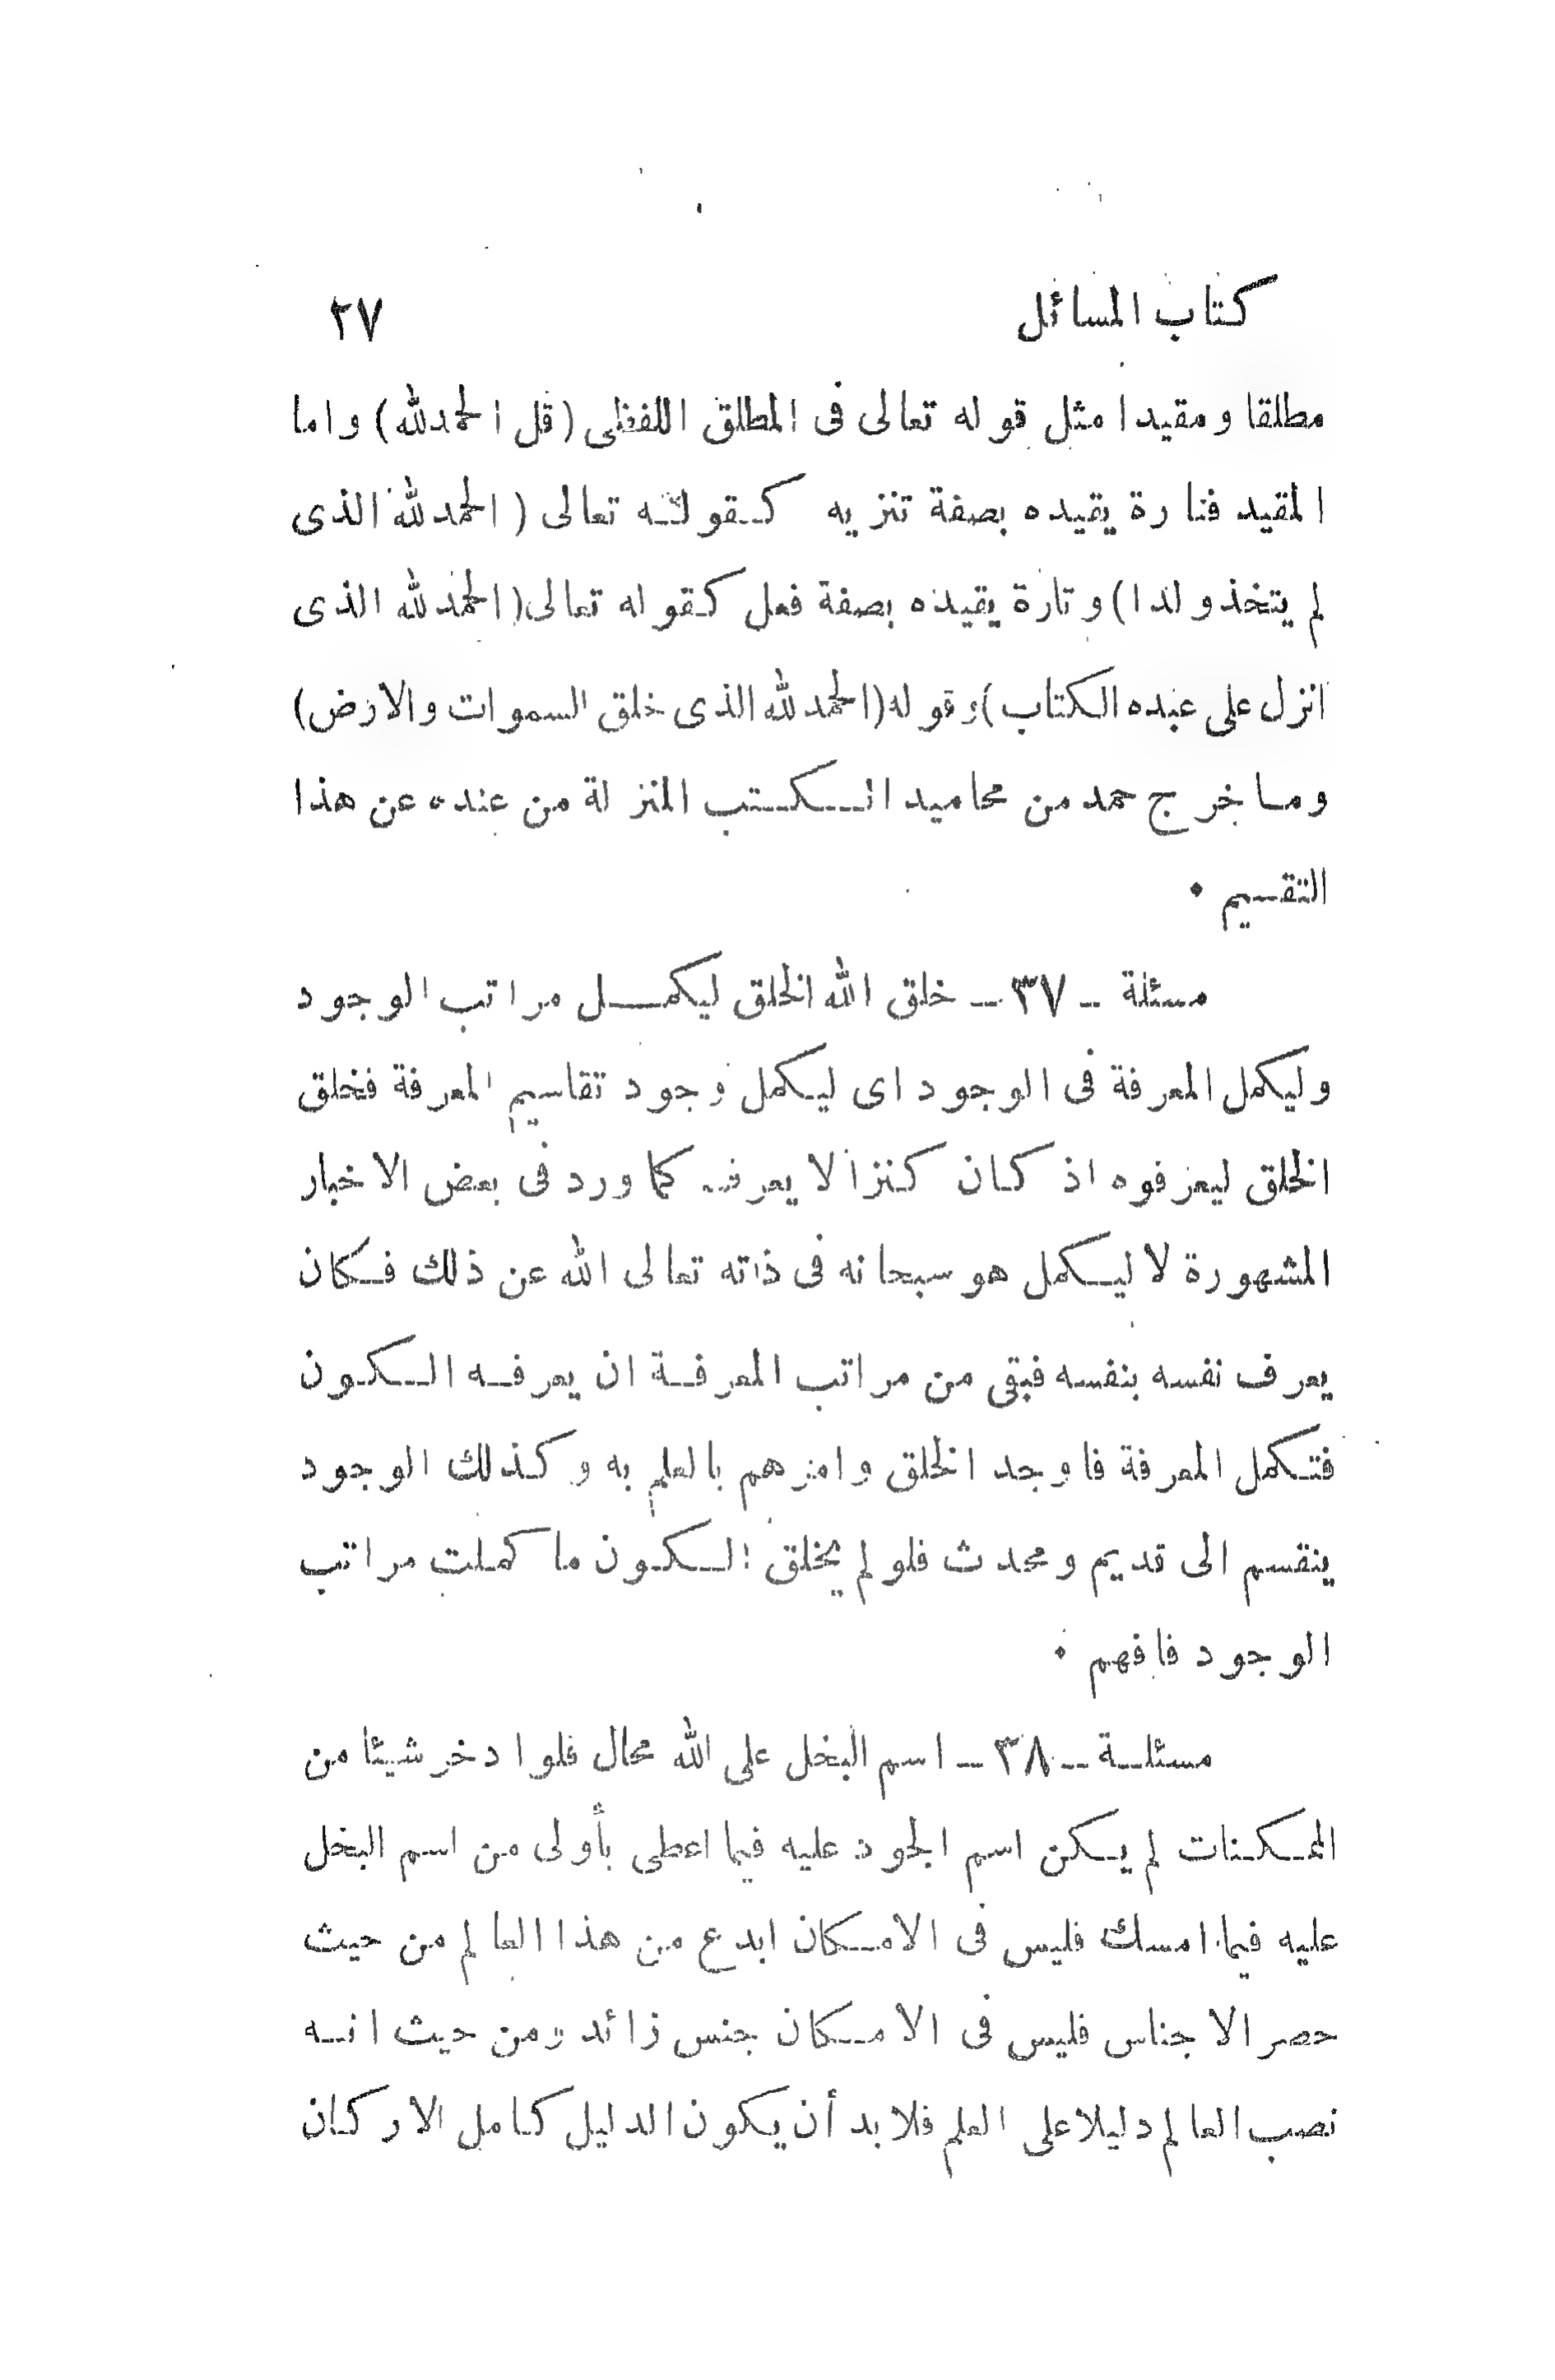 كتاب المسائل ٢٧
مطلقا ومقيدا مثل قوله تعالى فى المطلق اللفظى (قل الحمدلله) واما
المقيد فتارة يقيده بصفة تنزيه كقوله تعالى (الحمدلله الذى
لم يتخذ ولدا) وتارة يقيده بصفة فعل كقوله تعالى (الحمدلله الذى
انزل على عبده الكتاب) وقوله (الحمدلله الذى خلق السموات والارض)
وما خرج حمد من محاميد الكتب المنزلة من عنده عن هذا
التقسيم ٠
مسئلة ــ ٣٧ ــ خلق الله الخلق ليكمل مراتب الوجود
وليكمل المعرفة فى الوجود اى ليكمل وجود تقاسيم المعرفة فخلق
الخلق ليعرفوه اذ كان كنزا لا يعرف كما ورد فى بعض الاخبار
المشهورة لا ليكمل هو سبحانه فى ذاته تعالى الله عن ذلك فكان
يعرف نفسه بنفسه فبقى من مراتب المعرفة ان يعرفه الكون
فتكمل المعرفة فاوجد الخلق وامرهم بالعلم به وكذلك الوجود
ينقسم الى قديم ومحدث فلو لم يخلق الكون ما كملت مراتب
الوجود فافهم ٠
مسئلة ــ ٣٨ ــ اسم البخل على الله محال فلو ادخر شيئا من
الممكنات لم يكن اسم الجود عليه فيما اعطى بأولى من اسم البخل
عليه فيما امسك فليس فى الامكان ابدع من هذا العالم من حيث
حصر الاجناس فليس فى الامكان جنس زائد ومن حيث انه
نصب العالم دليلا على العلم فلا بد أن يكون الدليل كامل الاركان